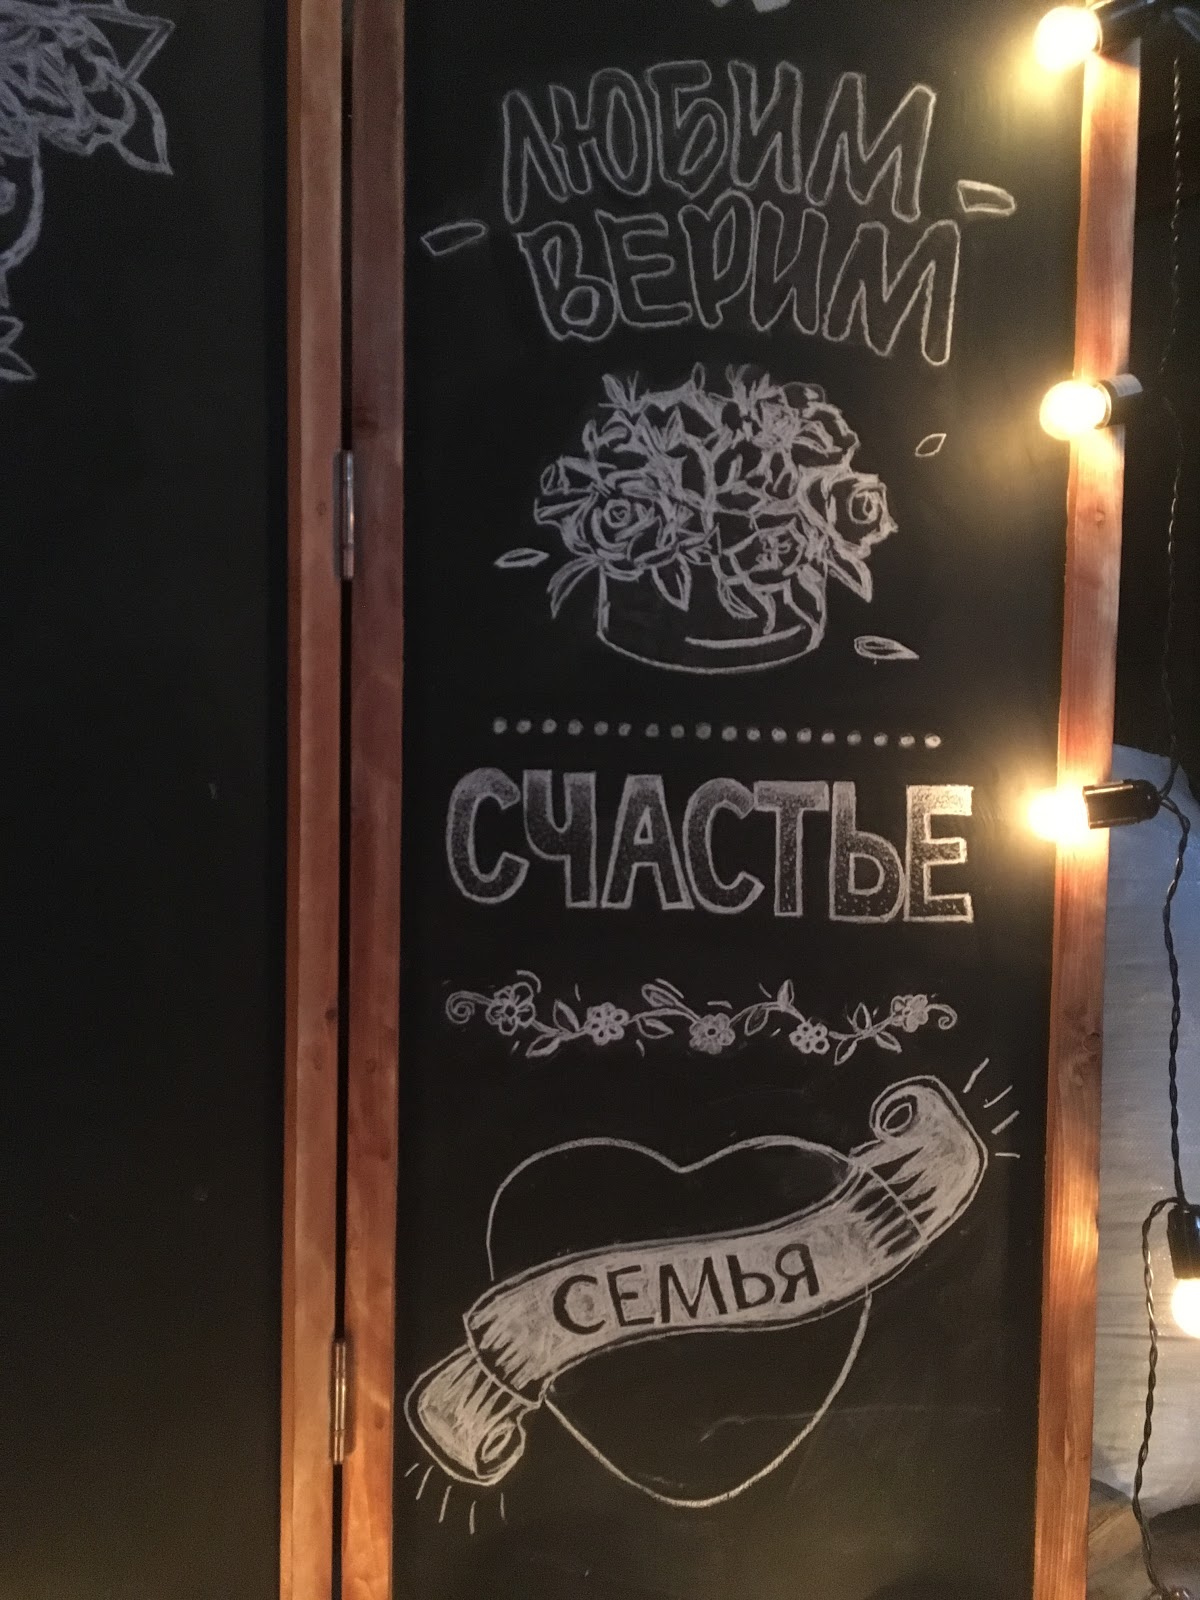 ЛЮБИМ
ВЕРИМ
СЧАСТЬЕ
СЕМЬЯ